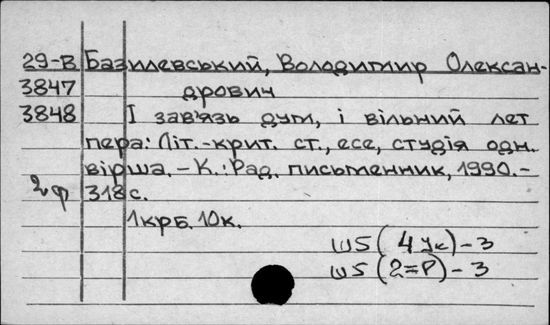 29-В Базилевський, Володимир Олексан-
3847 дрович
3848 І зав'язь дум, і вільний лет
пера: Літ.-крит. ст., есе, студія одн.
вірша. – К.: Рад. письменник, 1990.–
2ф 318 с.
1крб. 10к.
Ш5(4Ук)-3
Ш5(2=Р)-3